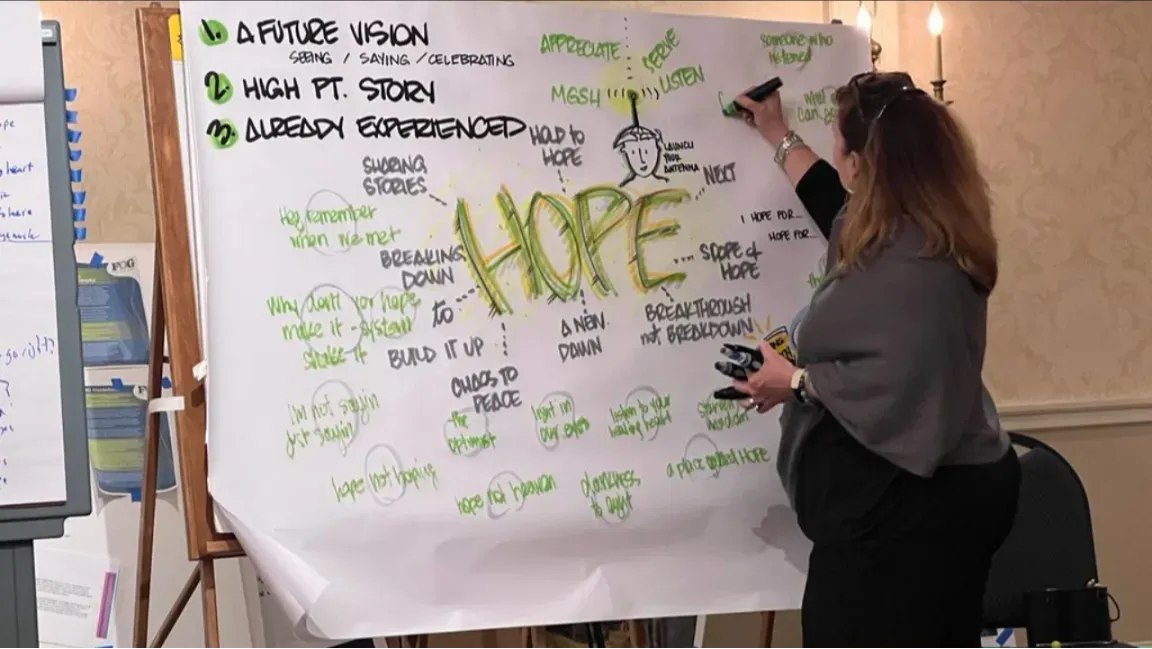 1. A FUTURE VISION
SEEING / SAYING / CELEBRATING
2. HIGH PT. STORY
3. ALREADY EXPERIENCED
APPRECIATE
SERVE
LISTEN
someone who
listened
LAUNCH
YOUR
ANTENNA
HOLD to
HOPE
SHARING
STORIES
NEXT
HOPE
I HOPE FOR...
HOPE FOR...
Hey remember
when we met
BREAKING
DOWN
to
BUILD IT UP
SCOPE of
HOPE
BREAKTHROUGH
not BREAKDOWN
A NEW
DAWN
CHAOS TO
PEACE
why don't you hope
make it - system
shake it
I'm not sayin
just sayin
the
optimist
light in
our eyes
listen to your
heart
hope not hoping
hope not heaven
darkness
to light
a place called HOPE